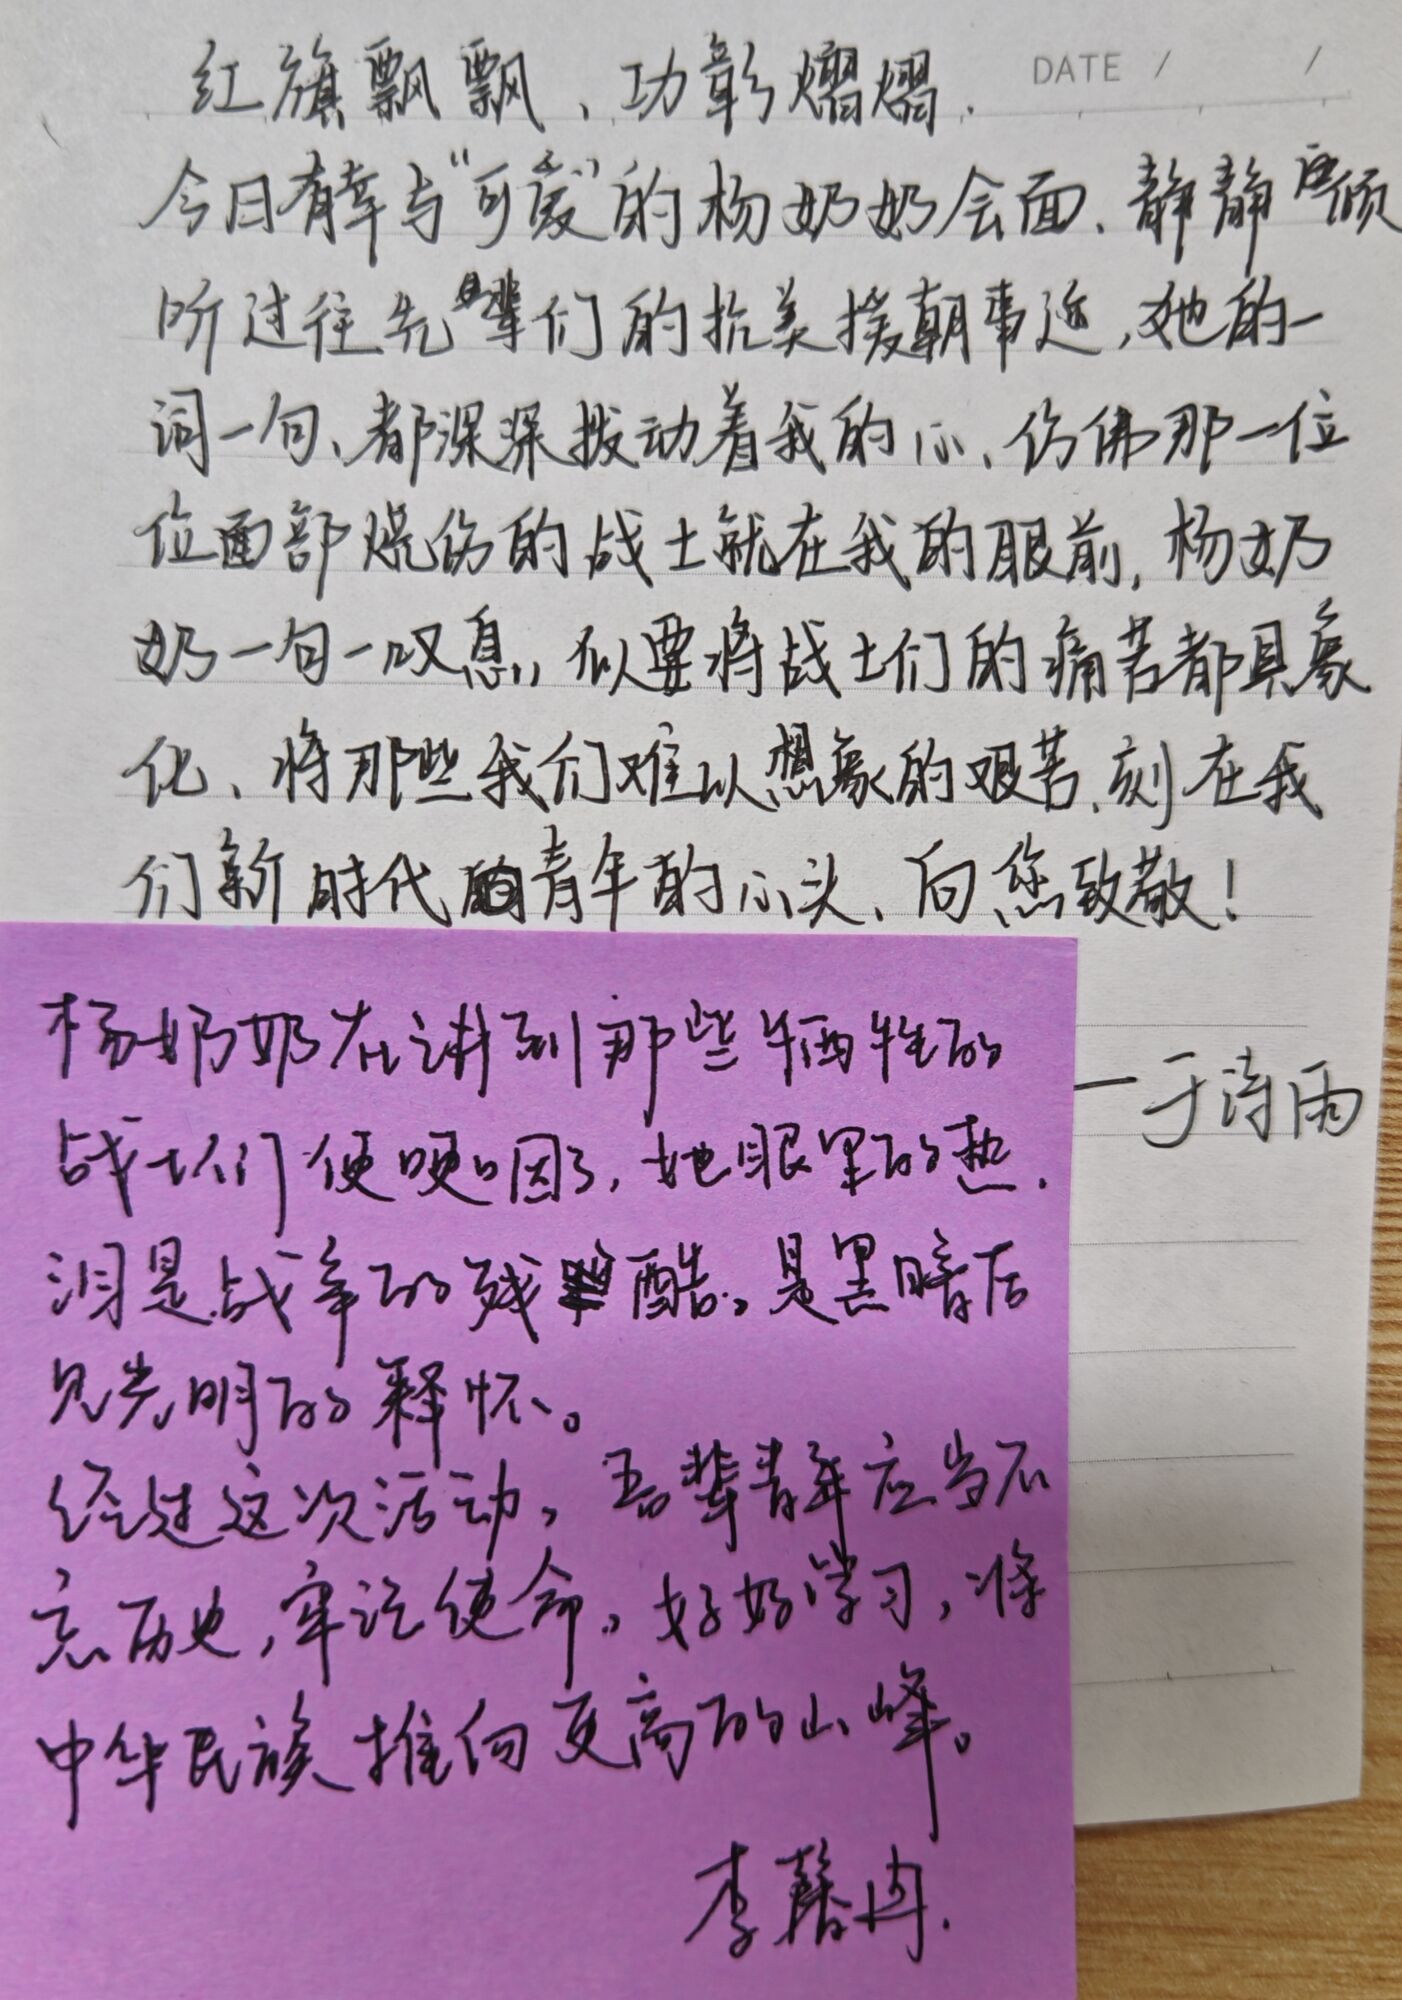 DATE / /
红旗飘飘、功彰熠熠.
今日有幸与“可爱”的杨奶奶会面、静静地倾
听过往先辈们的抗美援朝事迹,她的一
词一句、都深深拨动着我的心、仿佛那一位
位面部烧伤的战士就在我的眼前,杨奶
奶一句一叹息,似要将战士们的痛苦都具象
化、将那些我们难以想象的艰苦、刻在我
们新时代青年的心头、向您致敬!
—于诗雨
杨奶奶在讲到那些牺牲的
战士们便哽咽了,她眼里的热
泪是战争的残酷。是黑暗后
见光明的释怀。
经过这次活动,吾辈青年应当不
忘历史,牢记使命。好好学习,将
中华民族推向更高的山峰。
李馨冉.